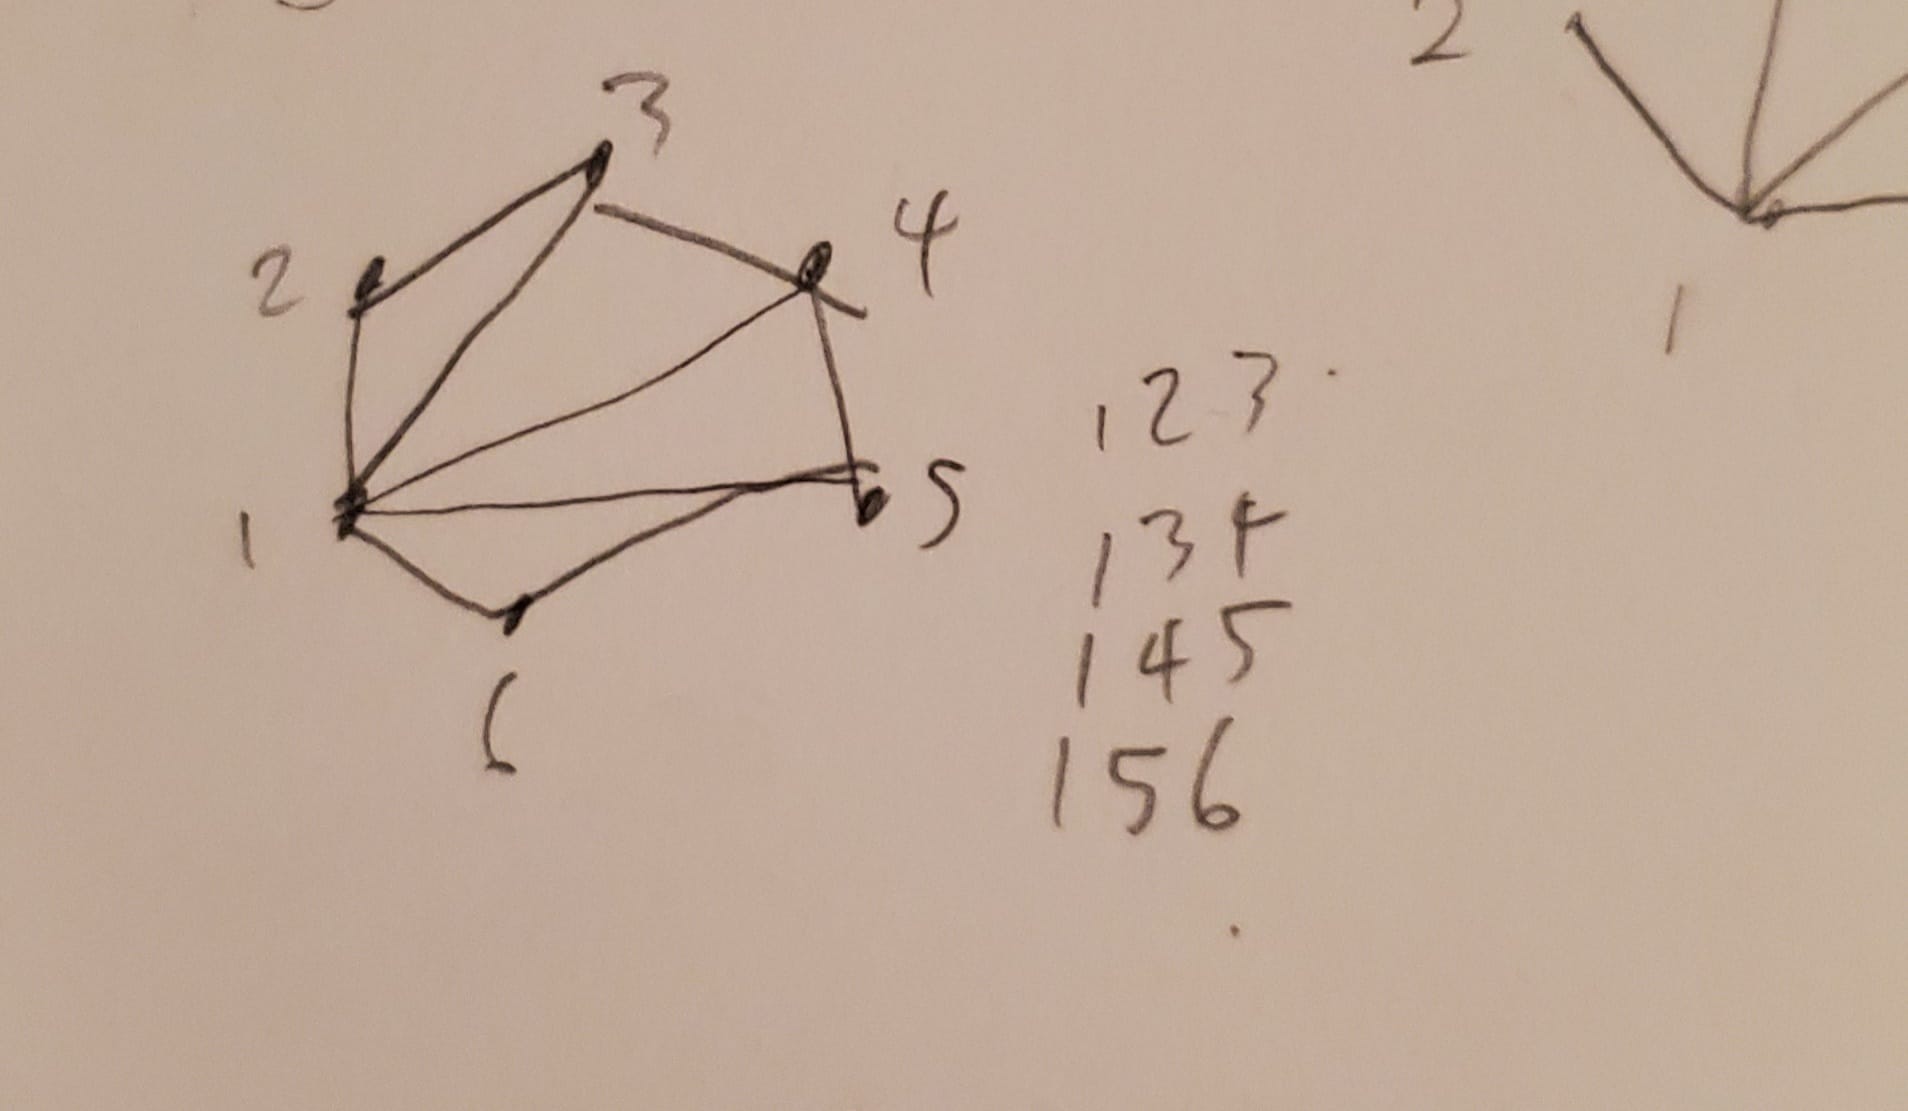 3
2
4
1
5
6
1 2 3
1 3 4
1 4 5
1 5 6
2
1